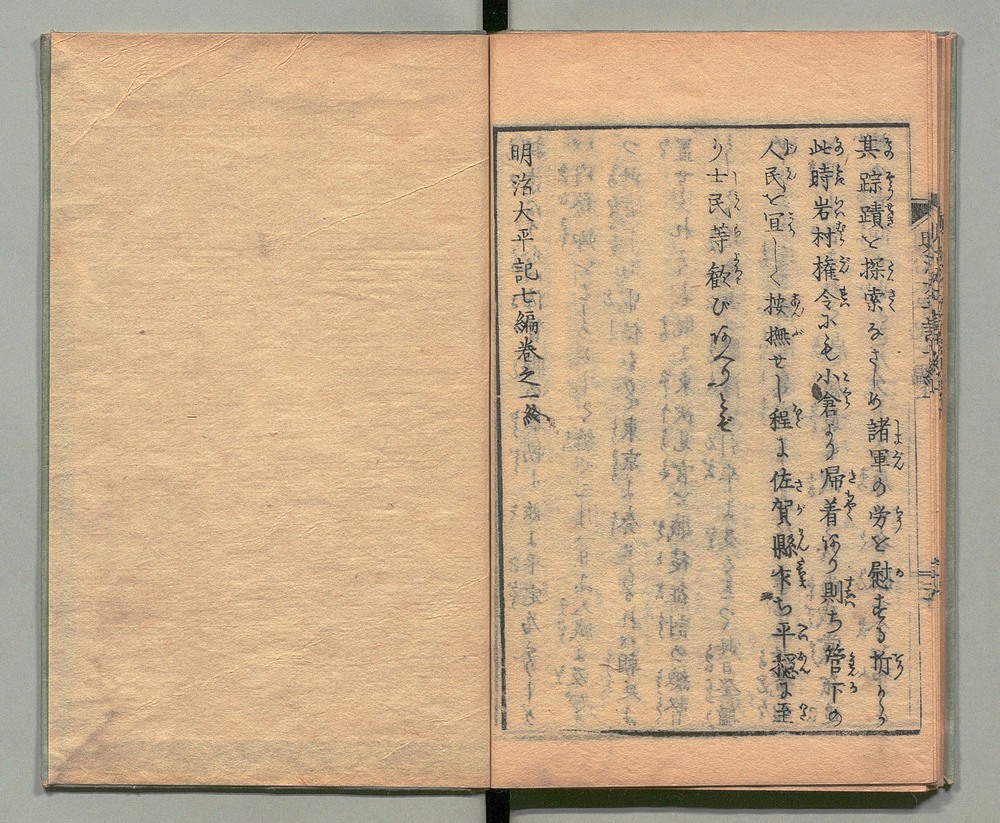 其踪蹟を探索なさしめ諸軍の労を慰する折から
此時岩村権令にも小倉より帰着あり則ち管下の
人民を宜しく按撫せし程に佐賀縣忽ち平穏に至
り士民等歓びあへりとぞ
明治太平記七編巻之一終